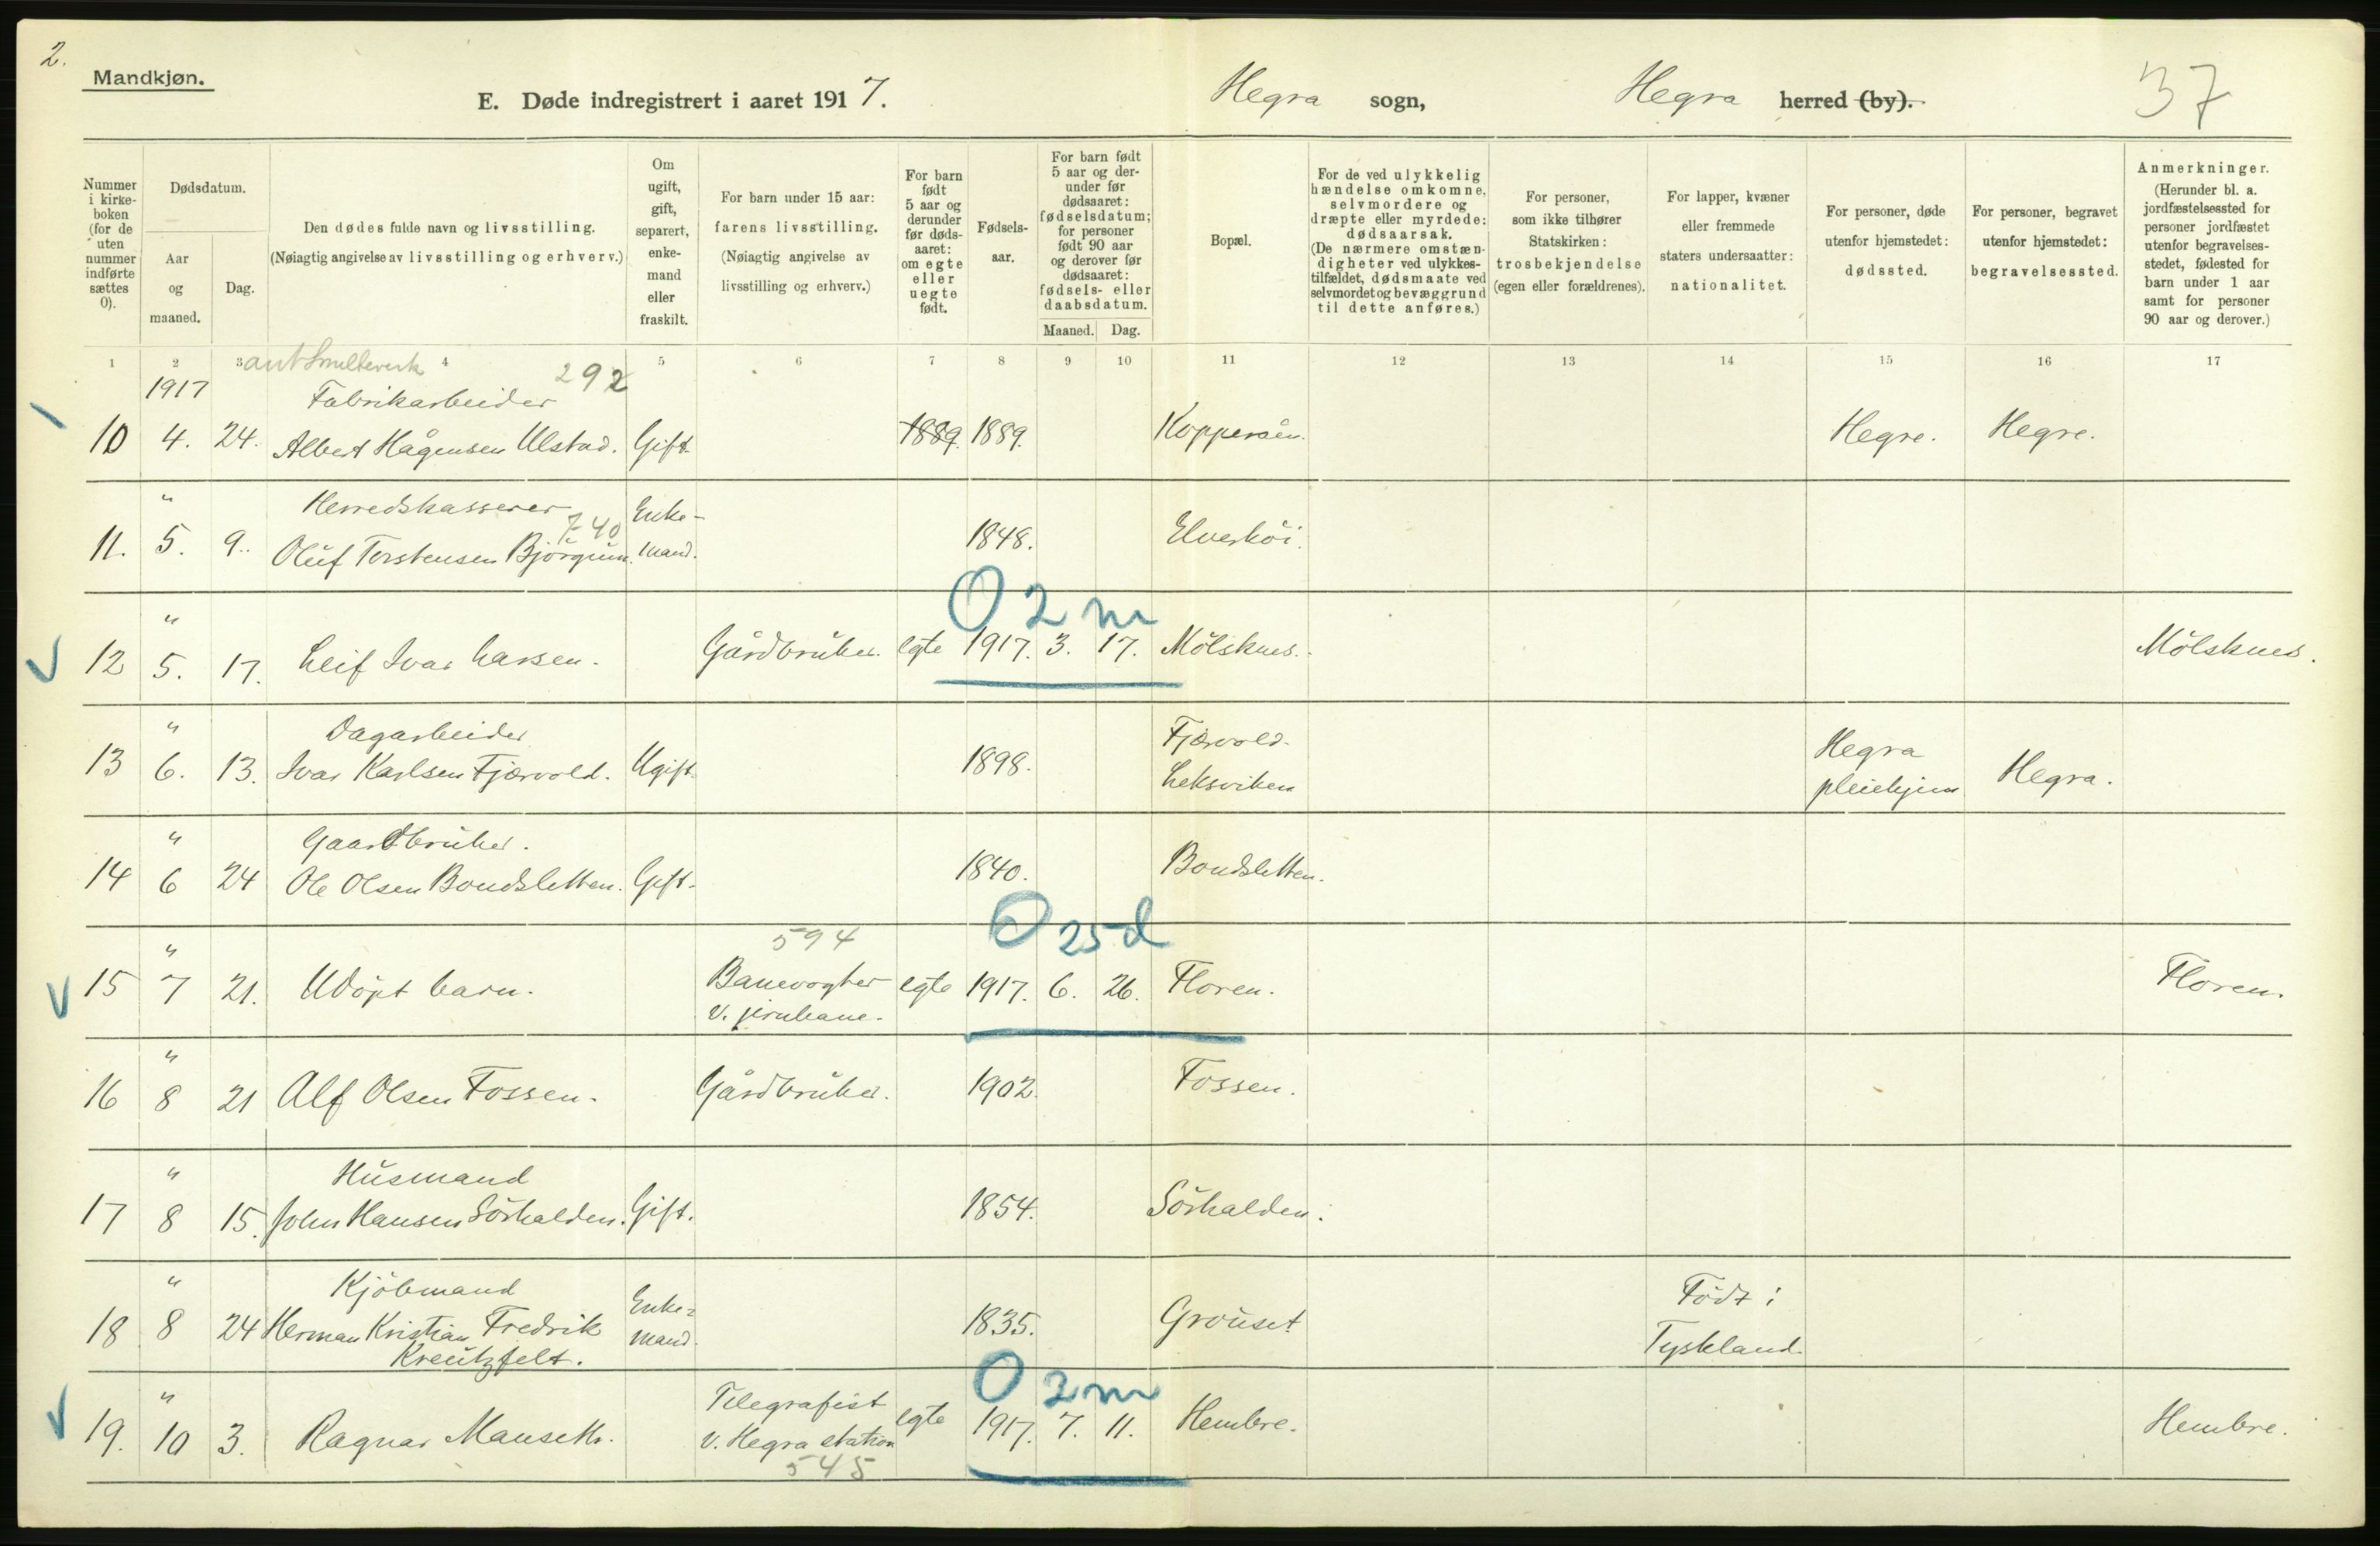 2.
Mandkjøn.
E. Døde indregistrert i aaret 1917.
Hegra sogn, Hegra herred (by).
37
Nummer i kirke-boken (for de uten nummer indførte sættes 0).
Dødsdatum.
Aar og maaned.
Dag.
Den dødes fulde navn og livsstilling.
(Nøiagtig angivelse av livsstilling og erhverv.)
Om ugift, gift, separert, enke-mand eller fraskilt.
For barn under 15 aar: farens livsstilling. (Nøiagtig angivelse av livsstilling og erhverv.)
For barn født 5 aar og derunder før døds-aaret: om egte eller uegte født.
Fødsels-aar.
For barn født 5 aar og der-under før dødsaaret: fødselsdatum; for personer født 90 aar og derover før dødsaaret: fødsels- eller daabsdatum.
Maaned. Dag.
Bopæl.
For de ved ulykkelig hændelse omkomne, selvmordere og dræpte eller myrdede: dødsaarsak. (De nærmere omstæn-digheter ved ulykkes-tilfældet, dødsmaate ved selvmordet og bevæggrund til dette anføres.)
For personer, som ikke tilhører Statskirken: trosbekjendelse (egen eller forældrenes).
For lapper, kvæner eller fremmede staters undersaatter: nationalitet.
For personer, døde utenfor hjemstedet: dødssted.
For personer, begravet utenfor hjemstedet: begravelsessted.
Anmerkninger. (Herunder bl. a. jordfæstelsessted for personer jordfæstet utenfor begravelses-stedet, fødested for barn under 1 aar samt for personer 90 aar og derover.)
1 2 3 4 5 6 7 8 9 10 11 12 13 14 15 16 17
Smelteverk
1917 Fabrikarbeider 292
10 4. 24. Albert Hågensen Ulstad. Gift 1889. 1889. Kopperåen. Hegre. Hegre.
" Herredskasserer 740 Enke-
11. 5. 9. Oluf Torstensen Bjørgum. mand. 1848. Elverhöi.
O 2 m
"
12 5. 17. Leif Ivar Larsen. Gårdbruker. egte 1917. 3. 17. Mölsknes. Mölsknes.
" Dagarbeider Fjærvold. Hegra
13 6. 13. Ivar Karlsen Fjærvold. Ugift. 1898. Leksviken pleiehjem Hegra.
" Gaardbruker.
14 6 24 Ole Olsen Bondsletten. Gift. 1840. Bondsletten.
O 25 d
" 594
15 7 21. Udöpt barn. Banevogter egte 1917. 6. 26. Floren. Floren.
v. jernbane.
"
16 8 21 Alf Olsen Fossen. Gårdbruker. 1902. Fossen.
" Husmand
17 8 15. John Hansen Sörhalden. Gift. 1854. Sörhalden.
" Kjöbmand Enke= Födt i
18 8 24 Herman Kristian Fredrik mand. 1835. Grouset Tyskland.
Kreutzfelt.
O 2 m
" Telegrafist
19. 10 3. Ragnar Mauseth. v. Hegra station egte 1917. 7. 11. Hembre. Hembre.
545